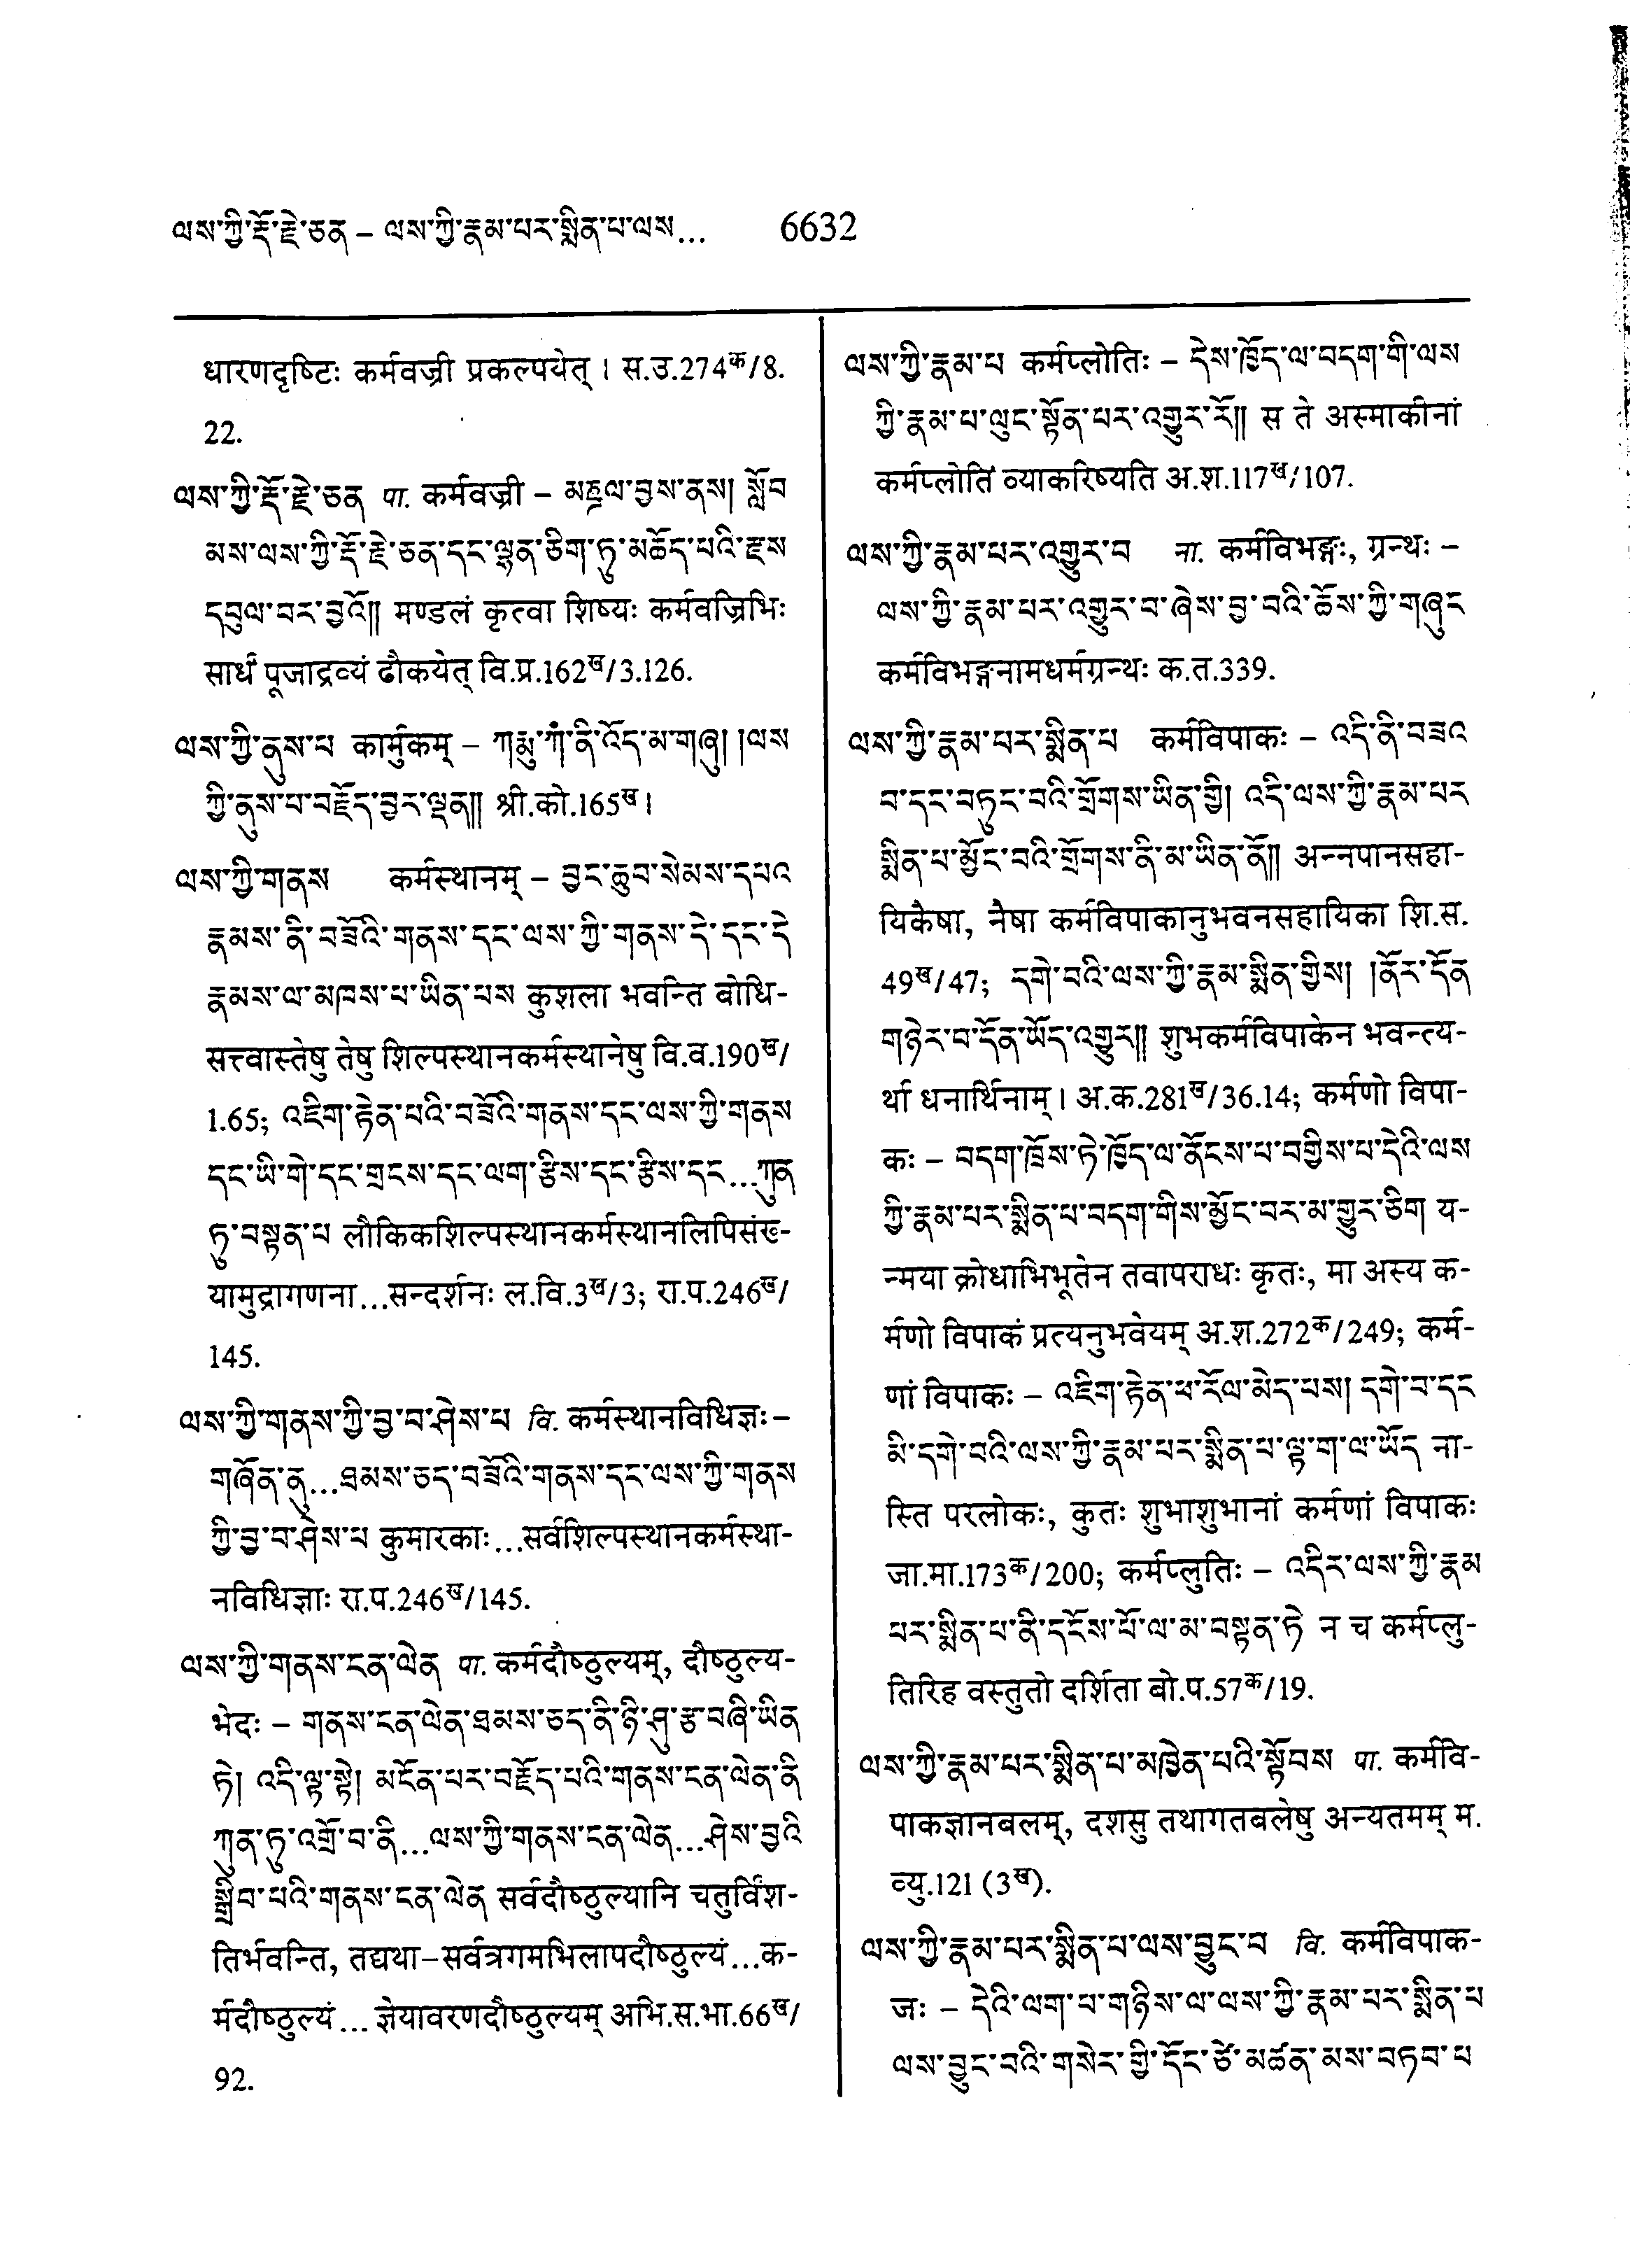 ལས་ཀྱི་རྡོ་རྗེ་ཅན – ལས་ཀྱི་རྣམ་པར་སྨིན་པ་ལས... 6632
धारणदृष्टिः कर्मवज्री प्रकल्पयेत् । स.उ.274क/8.
22.
ལས་ཀྱི་རྡོ་རྗེ་ཅན पा. कर्मवज्री – མཎྜལ་བྱས་ནས། སློབ
མས་ལས་ཀྱི་རྡོ་རྗེ་ཅན་དང་ལྷན་ཅིག་ཏུ་མཆོད་པའི་རྫས
དབུལ་བར་བྱའོ།། मण्डलं कृत्वा शिष्यः कर्मवज्रिभिः
सार्धं पूजाद्रव्यं ढौकयेत् वि.प्र.162ख/3.126.
ལས་ཀྱི་ནུས་པ कार्मुकम् – ཀརྨུ་ཀཾ་ནི་འོད་མ་གཞུ། །ལས
ཀྱི་ནུས་པ་བརྗོད་བྱར་ལྡན།། श्री.को.165ख।
ལས་ཀྱི་གནས कर्मस्थानम् – བྱང་ཆུབ་སེམས་དཔའ
རྣམས་ནི་བཟོའི་གནས་དང་ལས་ཀྱི་གནས་དེ་དང་དེ
རྣམས་ལ་མཁས་པ་ཡིན་པས कुशला भवन्ति बोधि-
सत्त्वास्तेषु तेषु शिल्पस्थानकर्मस्थानेषु वि.व.190ख/
1.65; འཇིག་རྟེན་པའི་བཟོའི་གནས་དང་ལས་ཀྱི་གནས
དང་ཡི་གེ་དང་གྲངས་དང་ལག་རྩིས་དང་རྩིས་དང...ཀུན
ཏུ་བསྟན་པ लौकिकशिल्पस्थानकर्मस्थानलिपिसंख-
यामुद्रागणना...सन्दर्शनः ल.वि.3ख/3; रा.प.246ख/
145.
ལས་ཀྱི་གནས་ཀྱི་བྱ་བ་ཤེས་པ वि. कर्मस्थानविधिज्ञः –
གཞོན་ནུ...ཐམས་ཅད་བཟོའི་གནས་དང་ལས་ཀྱི་གནས
ཀྱི་བྱ་བ་ཤེས་པ कुमारकाः...सर्वशिल्पस्थानकर्मस्था-
नविधिज्ञाः रा.प.246ख/145.
ལས་ཀྱི་གནས་ངན་ལེན पा. कर्मदौष्ठुल्यम्, दौष्ठुल्य-
भेदः – གནས་ངན་ལེན་ཐམས་ཅད་ནི་ཉི་ཤུ་རྩ་བཞི་ཡིན
ཏེ། འདི་ལྟ་སྟེ། མངོན་པར་བརྗོད་པའི་གནས་ངན་ལེན་ནི
ཀུན་ཏུ་འགྲོ་བ་ནི...ལས་ཀྱི་གནས་ངན་ལེན...ཤེས་བྱའི
སྒྲིབ་པའི་གནས་ངན་ལེན सर्वदौष्ठुल्यानि चतुर्विंश-
तिर्भवन्ति, तद्यथा–सर्वत्रगमभिलापदौष्ठुल्यं...क-
र्मदौष्ठुल्यं... ज्ञेयावरणदौष्ठुल्यम् अभि.स.भा.66ख/
92.
ལས་ཀྱི་རྣམ་པ कर्मप्लोतिः – དེས་ཁྱོད་ལ་བདག་གི་ལས
ཀྱི་རྣམ་པ་ལུང་སྟོན་པར་འགྱུར་རོ།། स ते अस्माकीनां
कर्मप्लोतिं व्याकरिष्यति अ.श.117ख/107.
ལས་ཀྱི་རྣམ་པར་འགྱུར་བ ना. कर्मविभङ्गः, ग्रन्थः –
ལས་ཀྱི་རྣམ་པར་འགྱུར་བ་ཞེས་བྱ་བའི་ཆོས་ཀྱི་གཞུང
कर्मविभङ्गनामधर्मग्रन्थः क.त.339.
ལས་ཀྱི་རྣམ་པར་སྨིན་པ कर्मविपाकः – འདི་ནི་བཟའ
བ་དང་བཏུང་བའི་གྲོགས་ཡིན་གྱི། འདི་ལས་ཀྱི་རྣམ་པར
སྨིན་པ་མྱོང་བའི་གྲོགས་ནི་མ་ཡིན་ནོ།། अन्नपानसहा-
यिकैषा, नैषा कर्मविपाकानुभवनसहायिका शि.स.
49ख/47; དགེ་བའི་ལས་ཀྱི་རྣམ་སྨིན་གྱིས། །ནོར་དོན
གཉེར་བ་དོན་ཡོད་འགྱུར།། शुभकर्मविपाकेन भवन्त्य-
र्था धनार्थिनाम् । अ.क.281ख/36.14; कर्मणो विपा-
कः – བདག་ཁྲོས་ཏེ་ཁྱོད་ལ་ནོངས་པ་བགྱིས་པ་དེའི་ལས
ཀྱི་རྣམ་པར་སྨིན་པ་བདག་གིས་མྱོང་བར་མ་གྱུར་ཅིག य-
न्मया क्रोधाभिभूतेन तवापराधः कृतः, मा अस्य क-
र्मणो विपाकं प्रत्यनुभवेयम् अ.श.272क/249; कर्म-
णां विपाकः – འཇིག་རྟེན་ཕ་རོལ་མེད་པས། དགེ་བ་དང
མི་དགེ་བའི་ལས་ཀྱི་རྣམ་པར་སྨིན་པ་ལྟ་ག་ལ་ཡོད ना-
स्ति परलोकः, कुतः शुभाशुभानां कर्मणां विपाकः
जा.मा.173क/200; कर्मप्लुतिः – འདིར་ལས་ཀྱི་རྣམ
པར་སྨིན་པ་ནི་དངོས་པོ་ལ་མ་བསྟན་ཏེ न च कर्मप्लु-
तिरिह वस्तुतो दर्शिता बो.प.57क/19.
ལས་ཀྱི་རྣམ་པར་སྨིན་པ་མཁྱེན་པའི་སྟོབས पा. कर्मवि-
पाकज्ञानबलम्, दशसु तथागतबलेषु अन्यतमम् म.
व्यु.121 (3ख).
ལས་ཀྱི་རྣམ་པར་སྨིན་པ་ལས་བྱུང་བ वि. कर्मविपाक-
जः – དེའི་ལག་པ་གཉིས་ལ་ལས་ཀྱི་རྣམ་པར་སྨིན་པ
ལས་བྱུང་བའི་གསེར་གྱི་དོང་ཙེ་མཚན་མས་བཏབ་པ